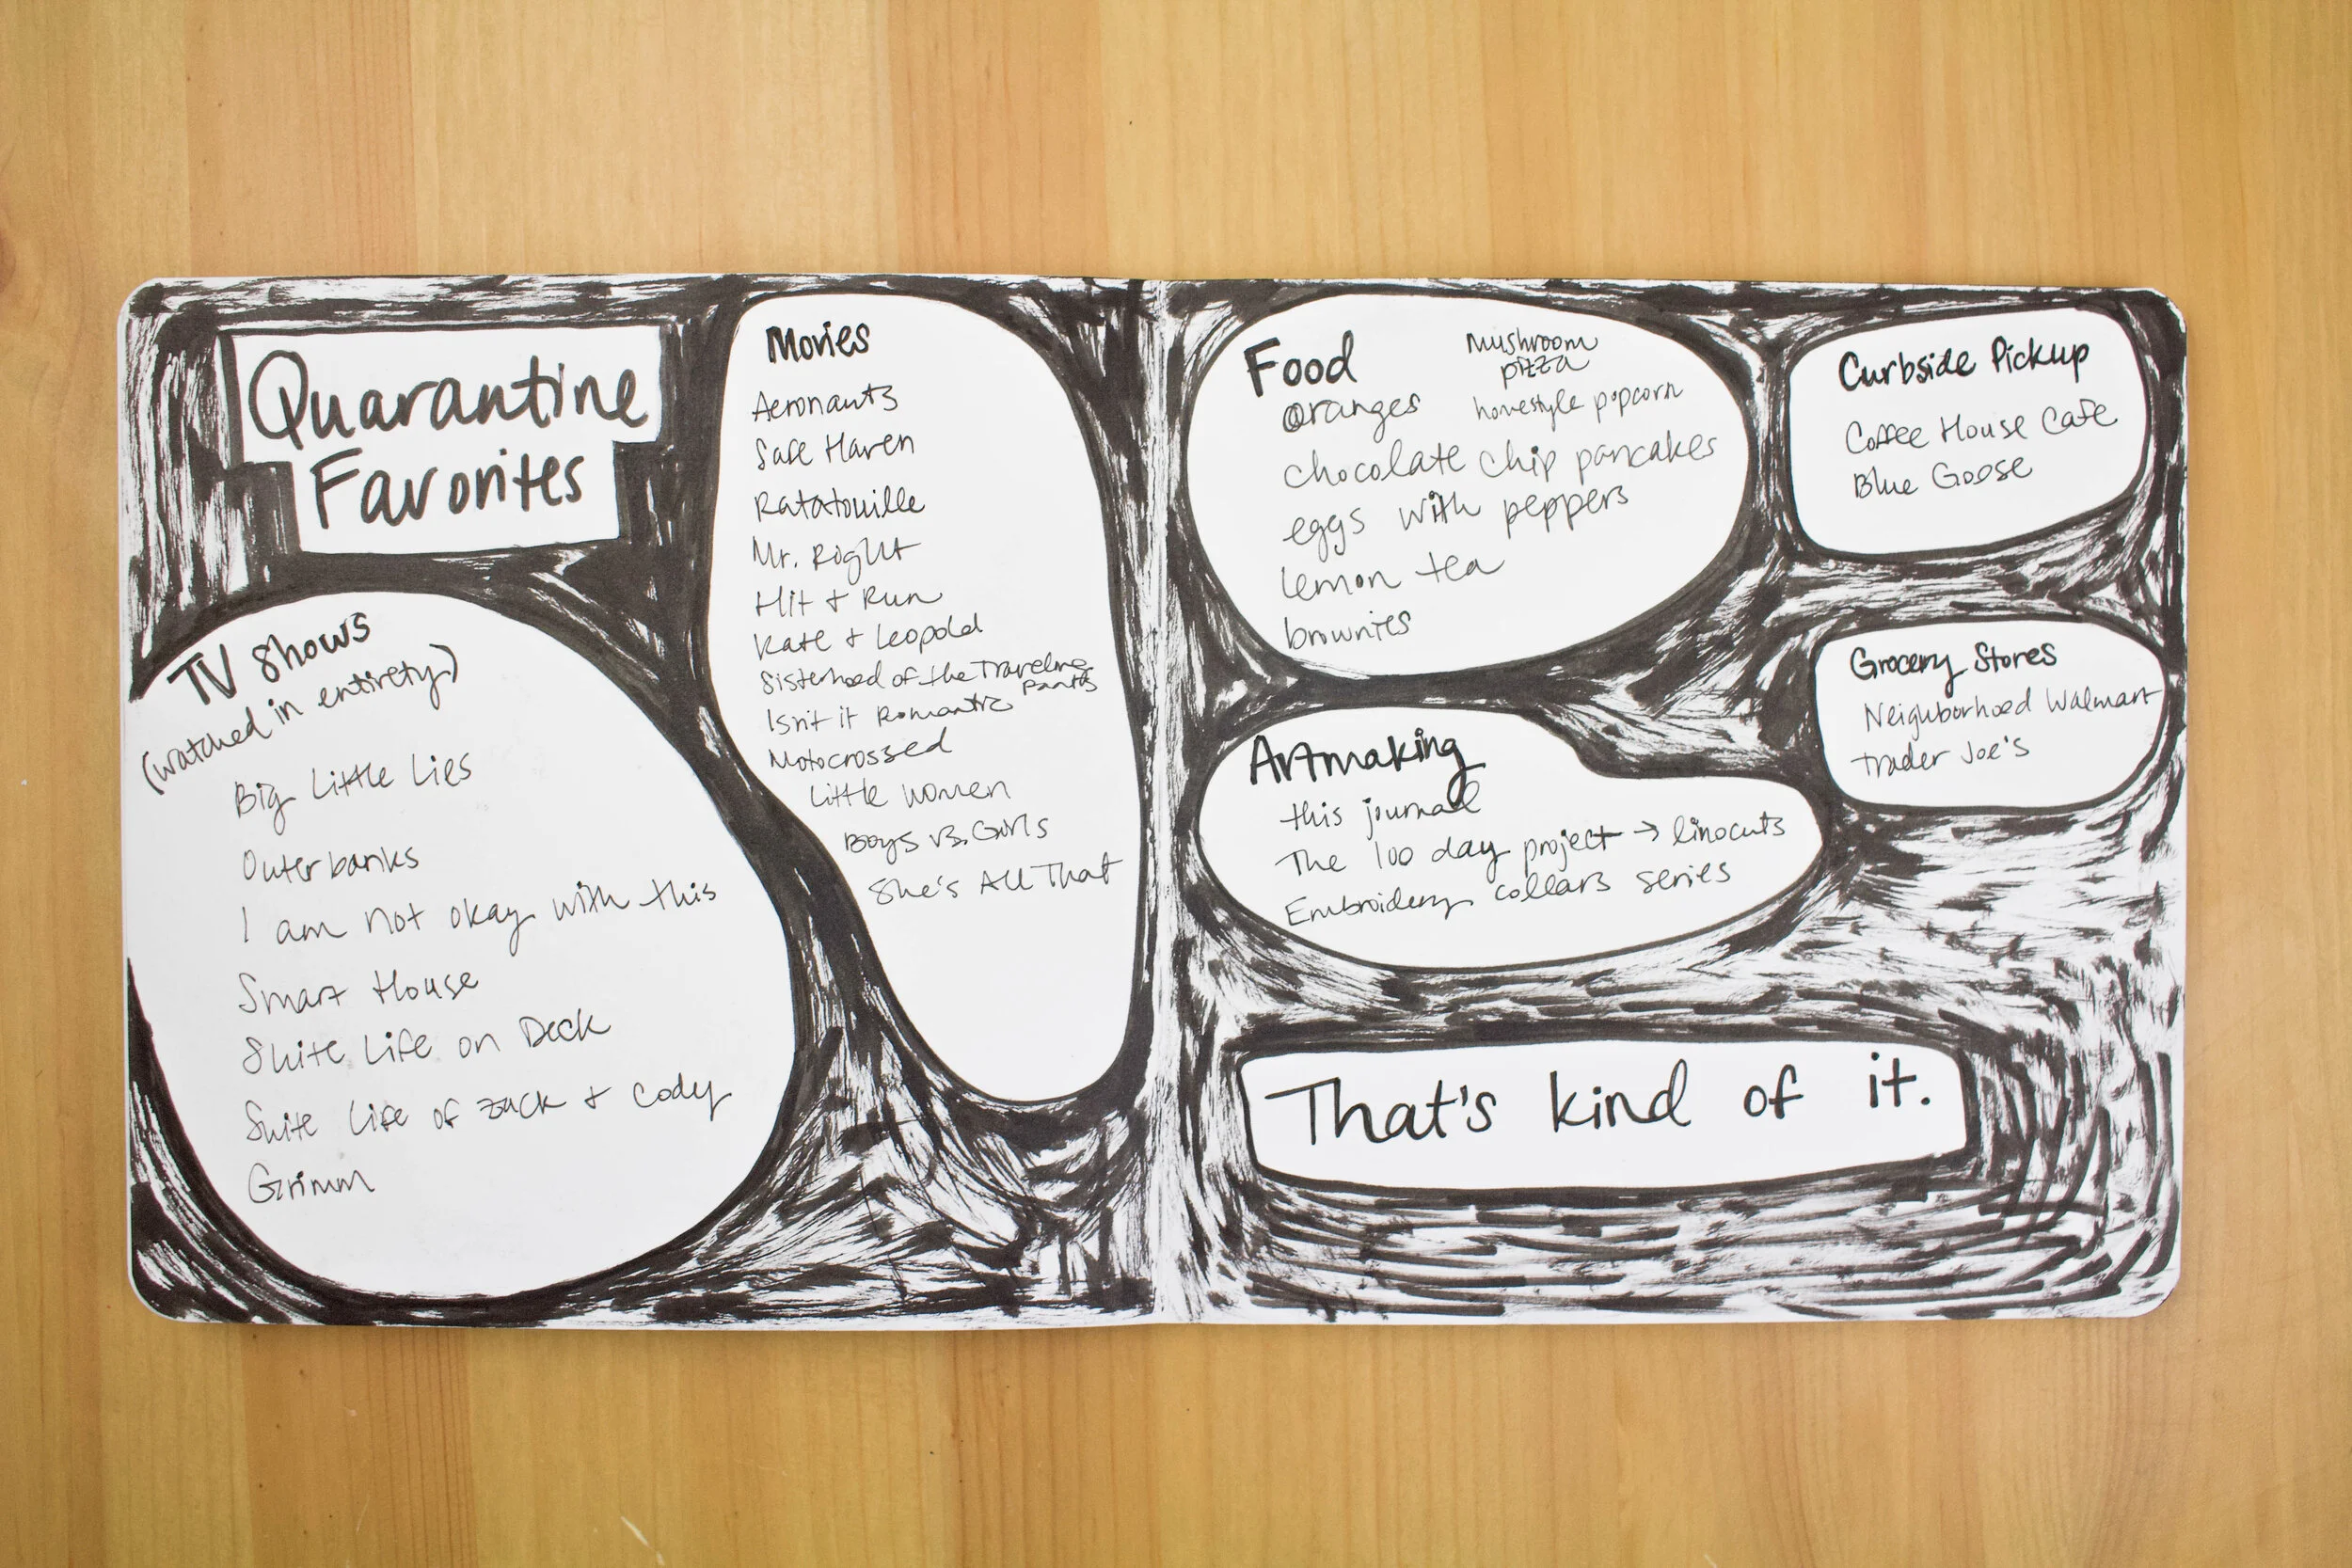 Quarantine
Favorites
TV Shows
(watched in entirety)
Big Little Lies
Outerbanks
I am not okay with this
Smart House
Suite Life on Deck
Suite Life of Zack + Cody
Grimm
Movies
Aeronauts
Safe Haven
Ratatouille
Mr. Right
Hit + Run
Kate + Leopold
Sisterhood of the Traveling
Pants
Isn't it Romantic
Motocrossed
Little Women
Boys vs. Girls
She's All That
Food
oranges
chocolate chip pancakes
eggs with peppers
lemon tea
brownies
Mushroom
pizza
homestyle popcorn
Artmaking
this journal
The 100 day project → linocuts
Embroidery collars series
Curbside Pickup
Coffee House Cafe
Blue Goose
Grocery Stores
Neighborhood Walmart
Trader Joe's
That's kind of it.